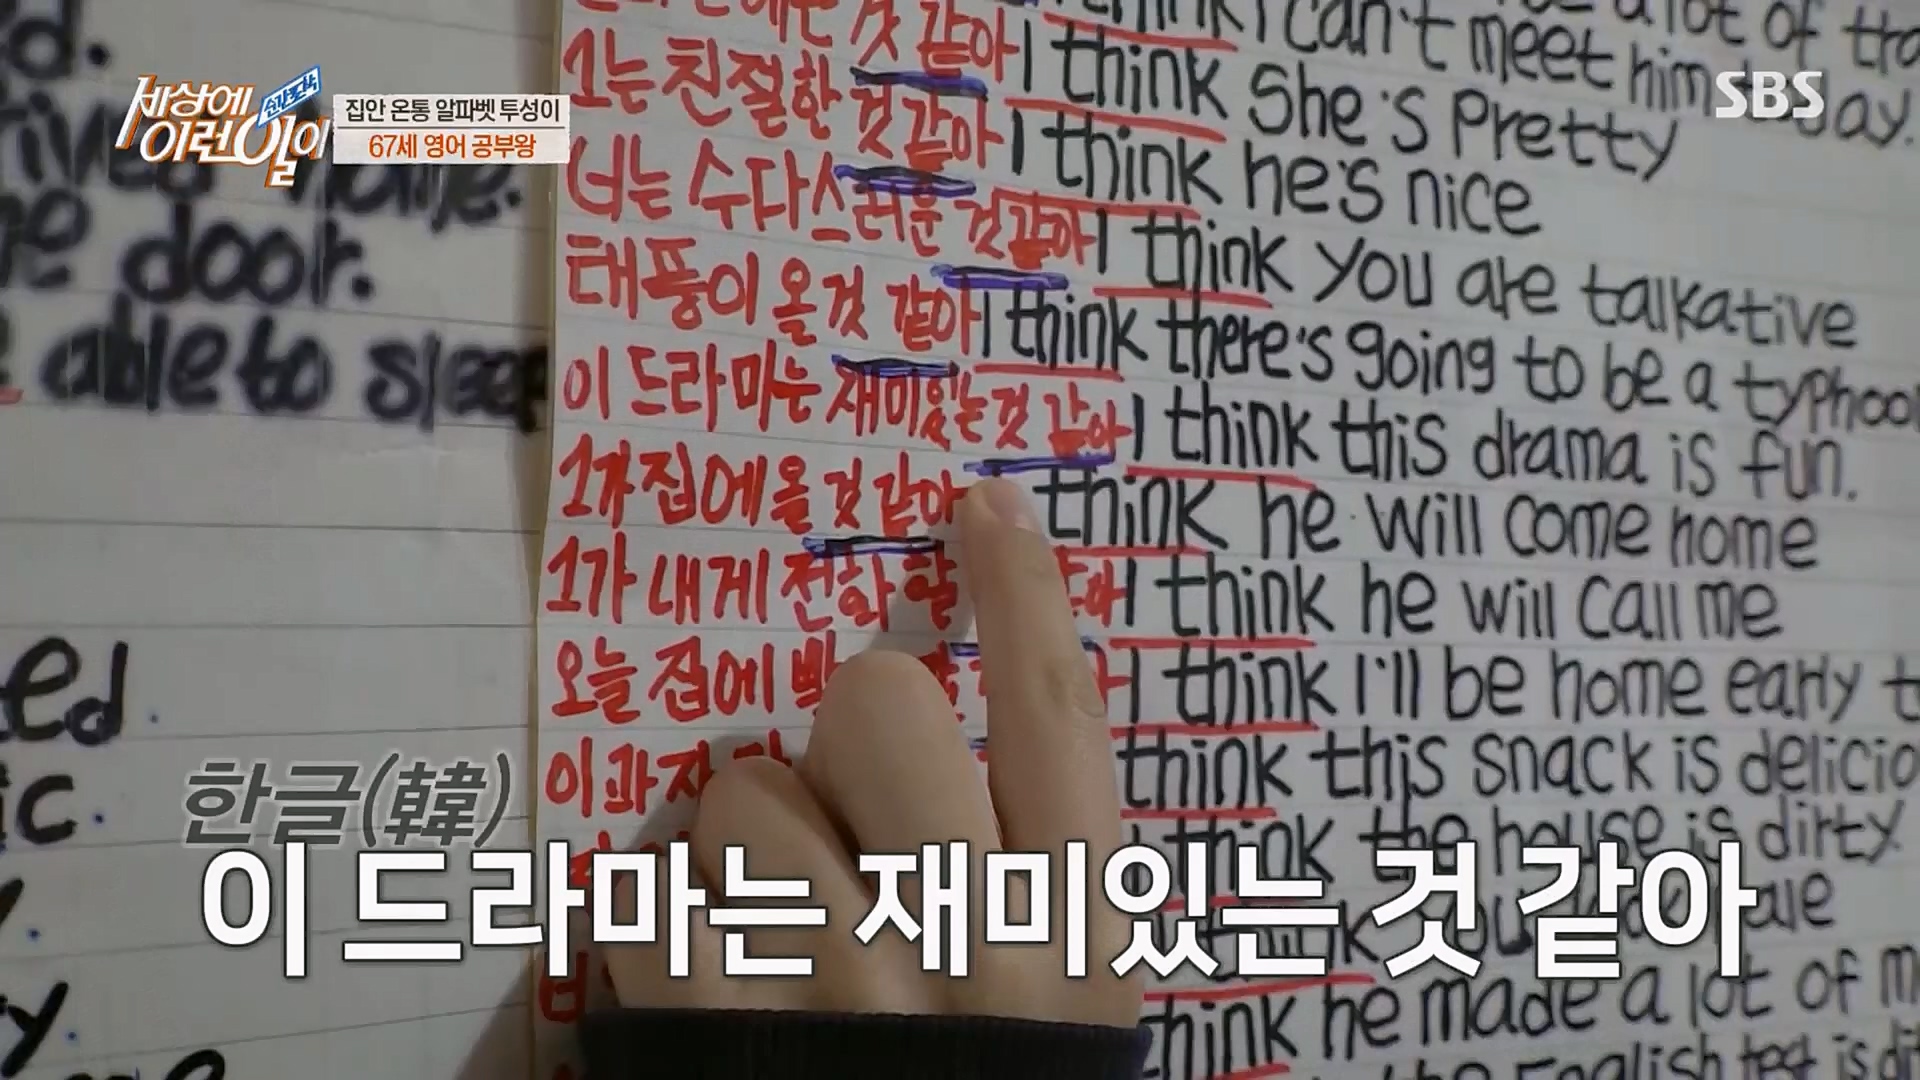 세상에
이런일이
순간포착
집안 온통 알파벳 투성이
67세 영어 공부왕
SBS
것 같아 I think I can't meet him today.
1는 친절한 것 같아 I think She's Pretty
너는 수다스러운 것 같아 I think he's nice
태풍이 올것 같아 I think you are talkative
이 드라마는 재미있는것 같아 I think there's going to be a typhoo
1가 집에 올 것 같아 I think this drama is fun.
1가 내게 전화 할 같아 think he will come home
오늘 집에 I think he will call me
이 과자 I think I'll be home early t
think this snack is delicio
think the house is dirty
think
think he made a lot of m
English test is di
a lot of tra
d.
home.
e door.
able to sleep
ed.
ic.
y.
한글(韓)
이 드라마는 재미있는 것 같아